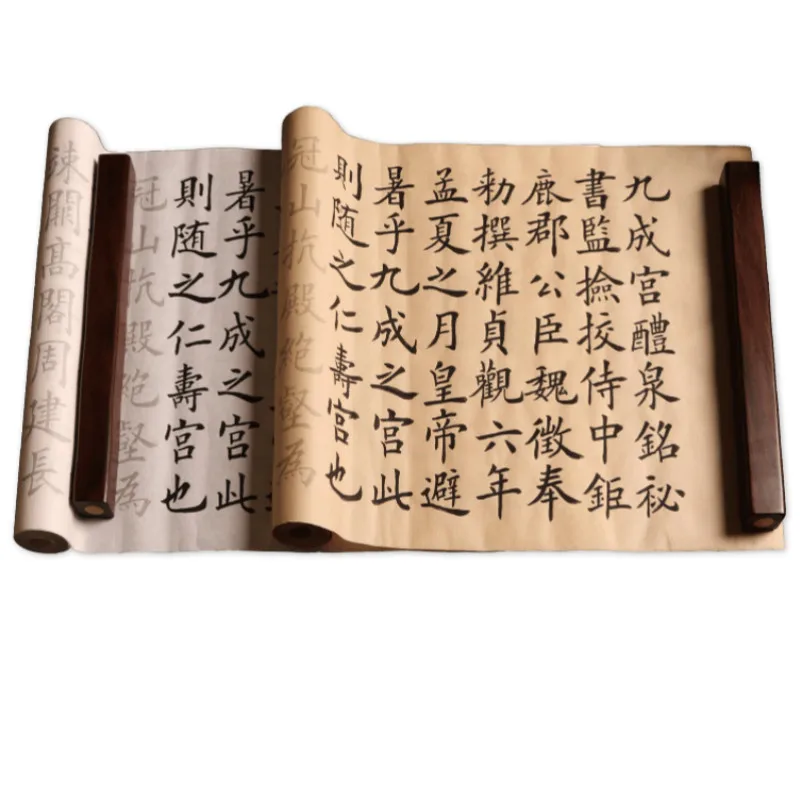 九成宫醴泉銘祕
書監撿挍侍中鉅
鹿郡公臣魏徵奉
勅撰維貞觀六年
孟夏之月皇帝避
暑乎九成之宫此
則随之仁壽宫也
冠山抗殿絶壑為
暑乎九成之宫此
則随之仁壽宫也
冠山抗殿絶壑為
竦闕髙閣周建長